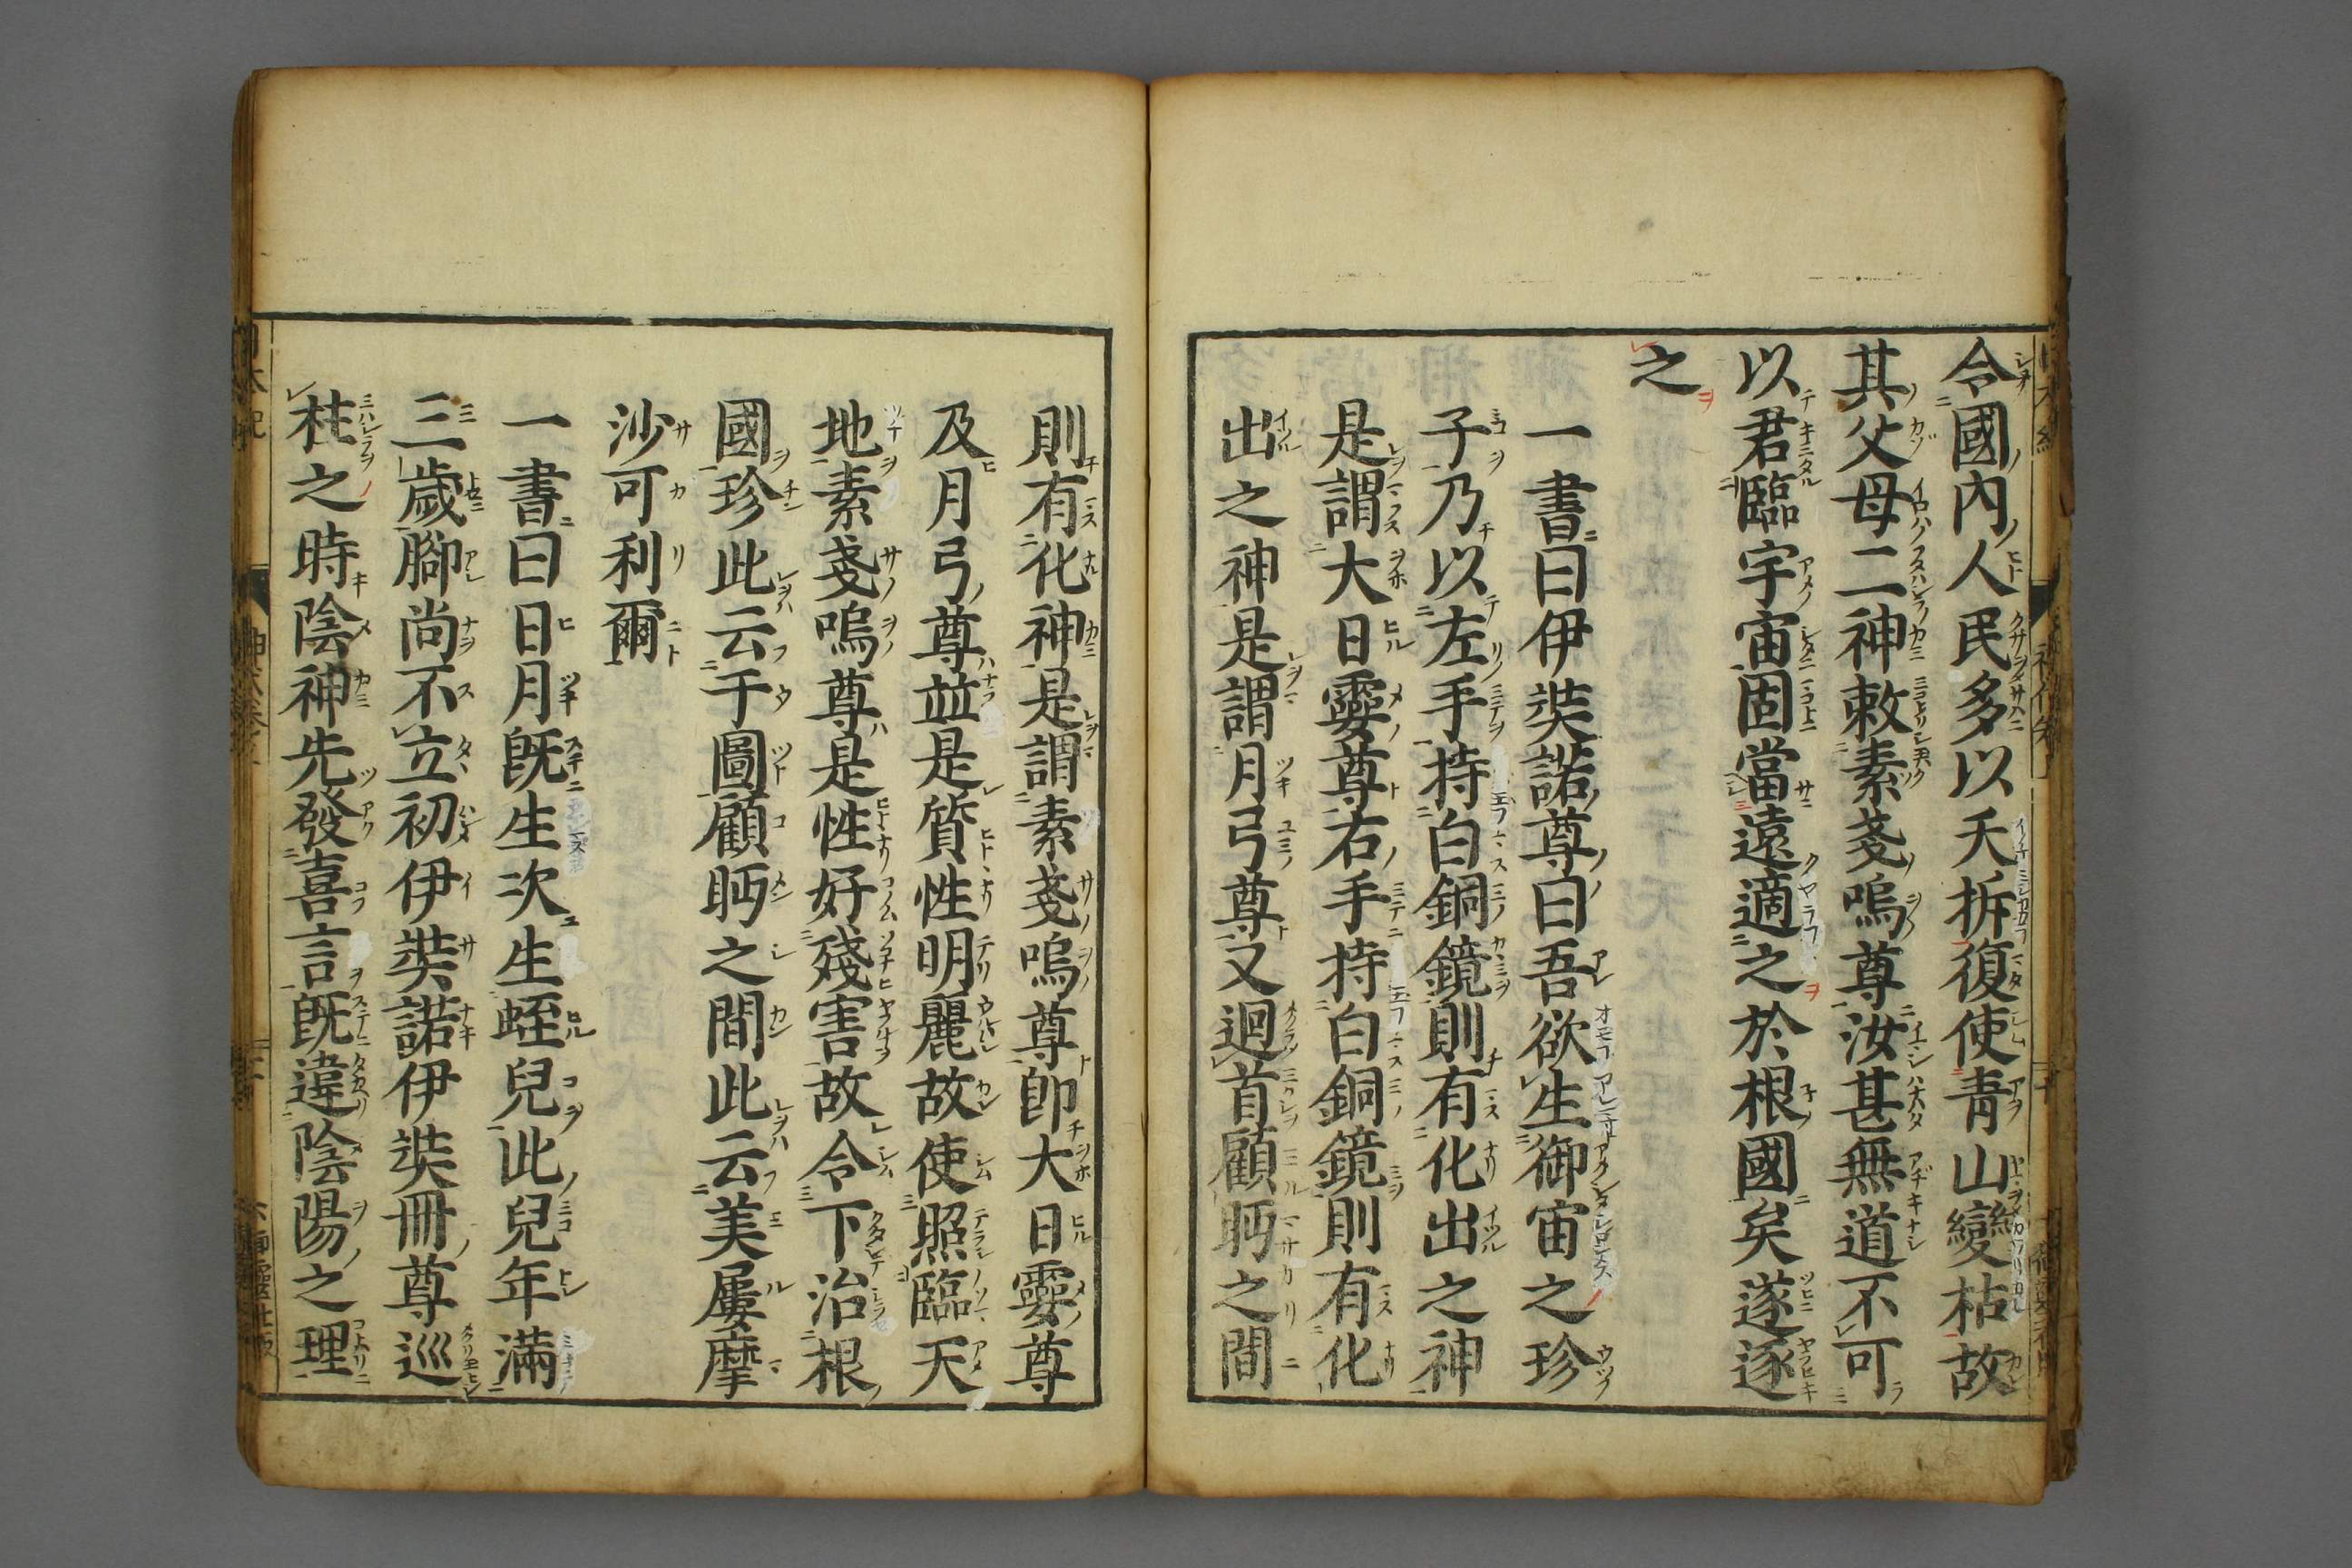 令國內人民多以夭折復使青山變枯故
其父母二神敕素戔嗚尊汝甚無道不可
以君臨宇宙固當遠適之於根國矣遂逐
之
一書曰伊奘諾尊曰吾欲生御宙之珍
子乃以左手持白銅鏡則有化出之神
是謂大日孁尊右手持白銅鏡則有化
出之神是謂月弓尊又迴首顧眄之間
則有化神是謂素戔嗚尊卽大日孁尊
及月弓尊並是質性明麗故使照臨天
地素戔嗚尊是性好殘害故令下治根
國珍此云于圖顧眄之間此云美屢摩
沙可利爾
一書曰日月旣生次生蛭兒此兒年滿
三歲腳尚不立初伊奘諾伊奘冊尊巡
柱之時陰神先發喜言旣違陰陽之理